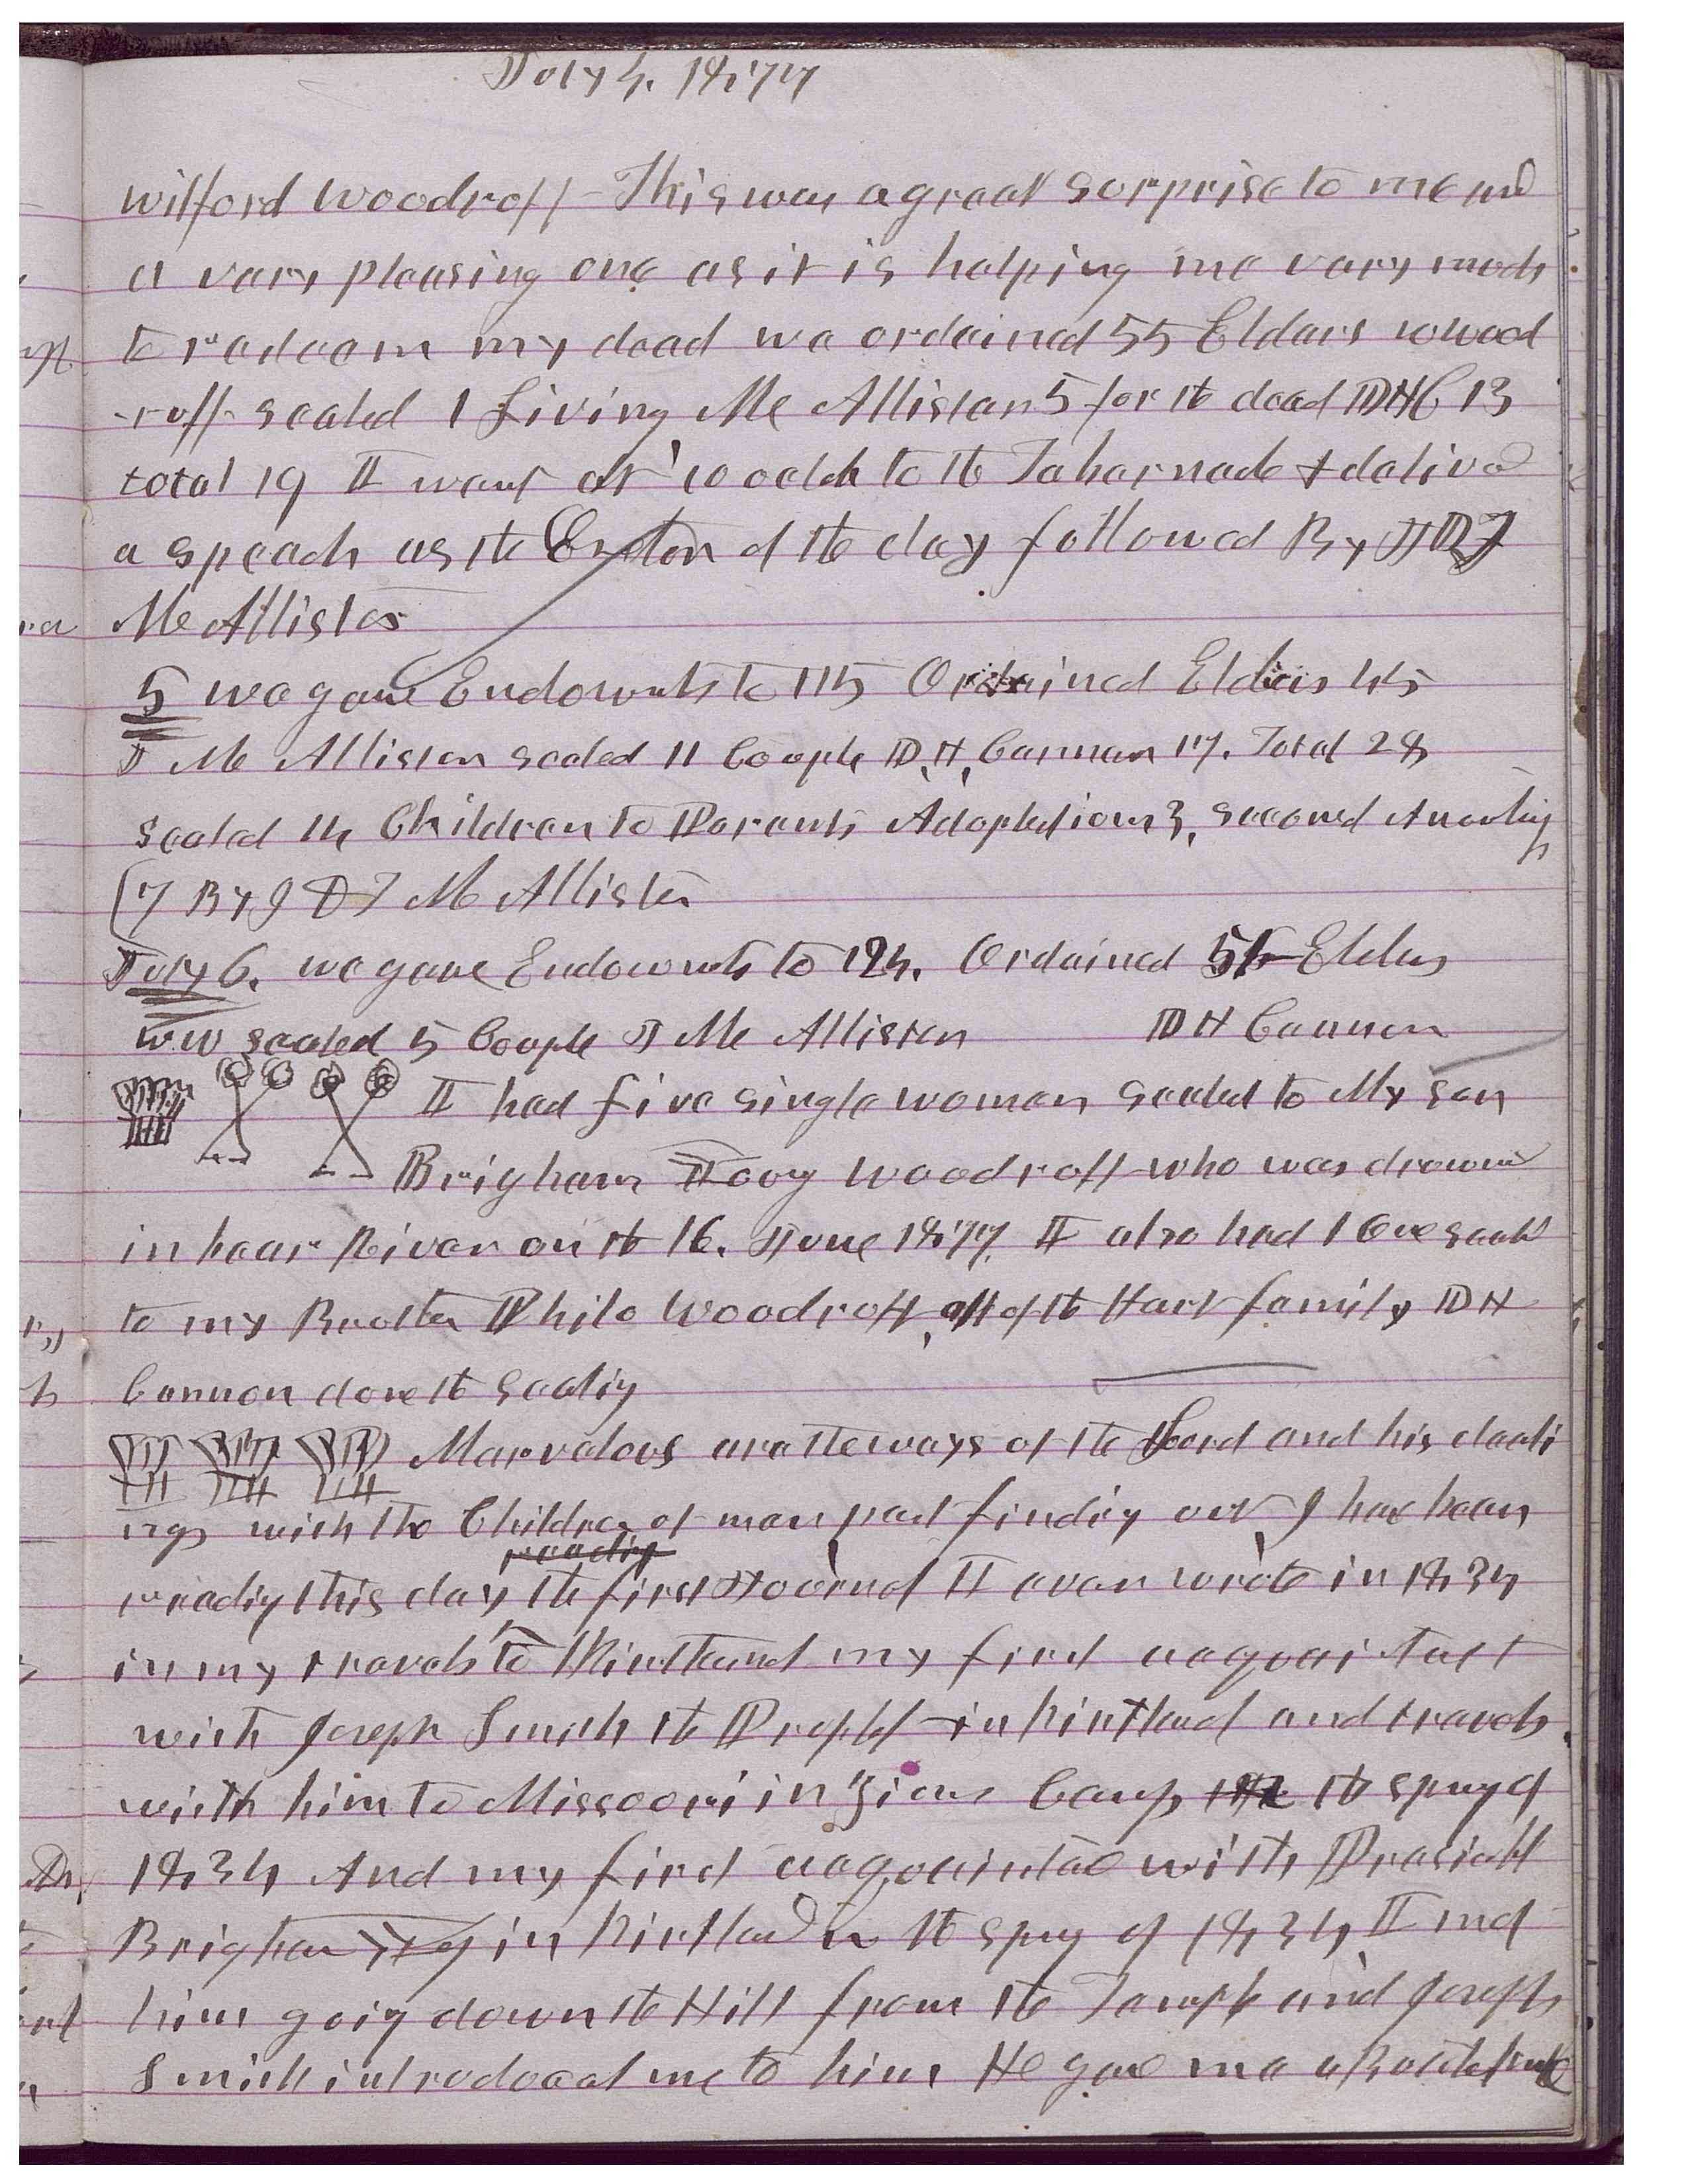 July 4. 1877
Wilford Woodruff - This was a great surprise to me and
a vary pleasing one as it is helping me vary much
to redeem my dead we ordained 55 Elders W Wood
-ruff sealed 1 Living McAllister 5 for the dead D H C 13
total 19 I went at 10 oclok to the Tabernacle & deliverd
a speech as the Orator of the day followed By J D T
McAllister
5 we gave Endowmets to 115 Ordained Elders 45
J McAllister sealed 11 Couple D. H. Cannon 17. Total 28
sealed 14 Children to Parents Adoptedions 3, second Anointing
(7 By J D T McAllister
July 6. we gave Endowmets to 124. Ordained Elders
W W sealed 5 Couple J McAllister D H Cannon
I had five single women sealed to My son
Brigham Young Woodruff who was drownd
in bear River on the 16. June 1877. I also had 1 One seald
to my Brother Philo Woodruff, all of the Hart family D H
Cannon done the sealing
Marvelous are the ways of the Lord and his deali
ngs with the Children of man past finding out I have been
reading
reading this day the first Journal I ever wrote in 1834
in my travels to Kirtland my first acquaintact
with Joseph Smith the Prophet in Kirtland and travels
with him to Missouri in Zions Camp the spring of
1834 And my first acquaintac with President
Brigham Young in Kirtland in the spring of 1834, I met
him going down the Hill from the Temple and Joseph
Smith introduced me to him He gave me a